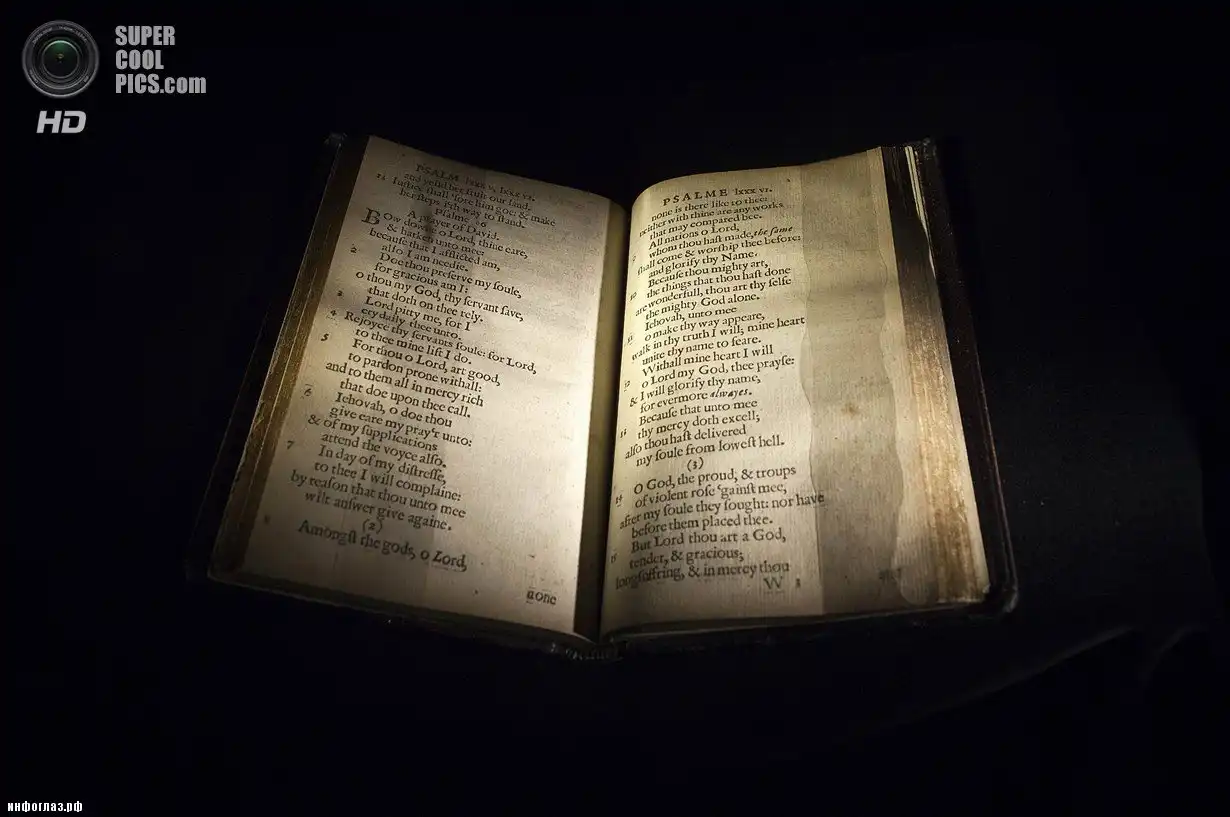 SUPER
COOL
PICS.com
HD
PSALM lxxxv, lxxxvi.
and yeild her fruit our land.
Iustice shall 'fore him goe: & make
her steps ith way to stand.
Psalme 86
A prayer of David.
BOw downe o Lord, thine eare,
& harken unto mee:
because that I afflicted am,
also I am needie.
2 Doe thou preserve my soule,
for gracious am I:
o thou my God, thy servant save,
that doth on thee rely.
3 Lord pitty me, for I
cry daily thee unto.
4 Rejoyce thy servants soule: for Lord,
to thee mine lift I do.
5 For thou o Lord, art good,
to pardon prone withall:
and to them all in mercy rich
that doe upon thee call.
6 Iehovah, o doe thou
give eare my pray'r unto:
& of my supplications
attend the voyce also.
7 In day of my distresse,
to thee I will complaine:
by reason that thou unto mee
wilt answer give againe.
(2)
8 Amongst the gods, o Lord,
none
PSALME lxxxvi.
none is there like to thee:
neither with thine are any works
that may compared bee.
9 All nations o Lord,
whom thou hast made, the same
shall come & worship thee before:
and glorify thy Name.
10 Because thou mighty art,
the things that thou hast done
are wonderfull, thou art thy selfe
the mighty God alone.
11 Iehovah, unto mee
o make thy way appeare,
walk in thy truth I will; mine heart
unite thy name to feare.
12 Withall mine heart I will
o Lord my God, thee prayse:
& I will glorify thy name,
for evermore alwayes.
Because that unto mee
thy mercy doth excell;
also thou hast delivered
my soule from lowest hell.
(3)
14 O God, the proud, & troups
of violent rose 'gainst mee,
after my soule they sought: nor have
before them placed thee.
15 But Lord thou art a God,
tender, & gracious;
longsuffring, & in mercy thou
W
инфоглаз.рф